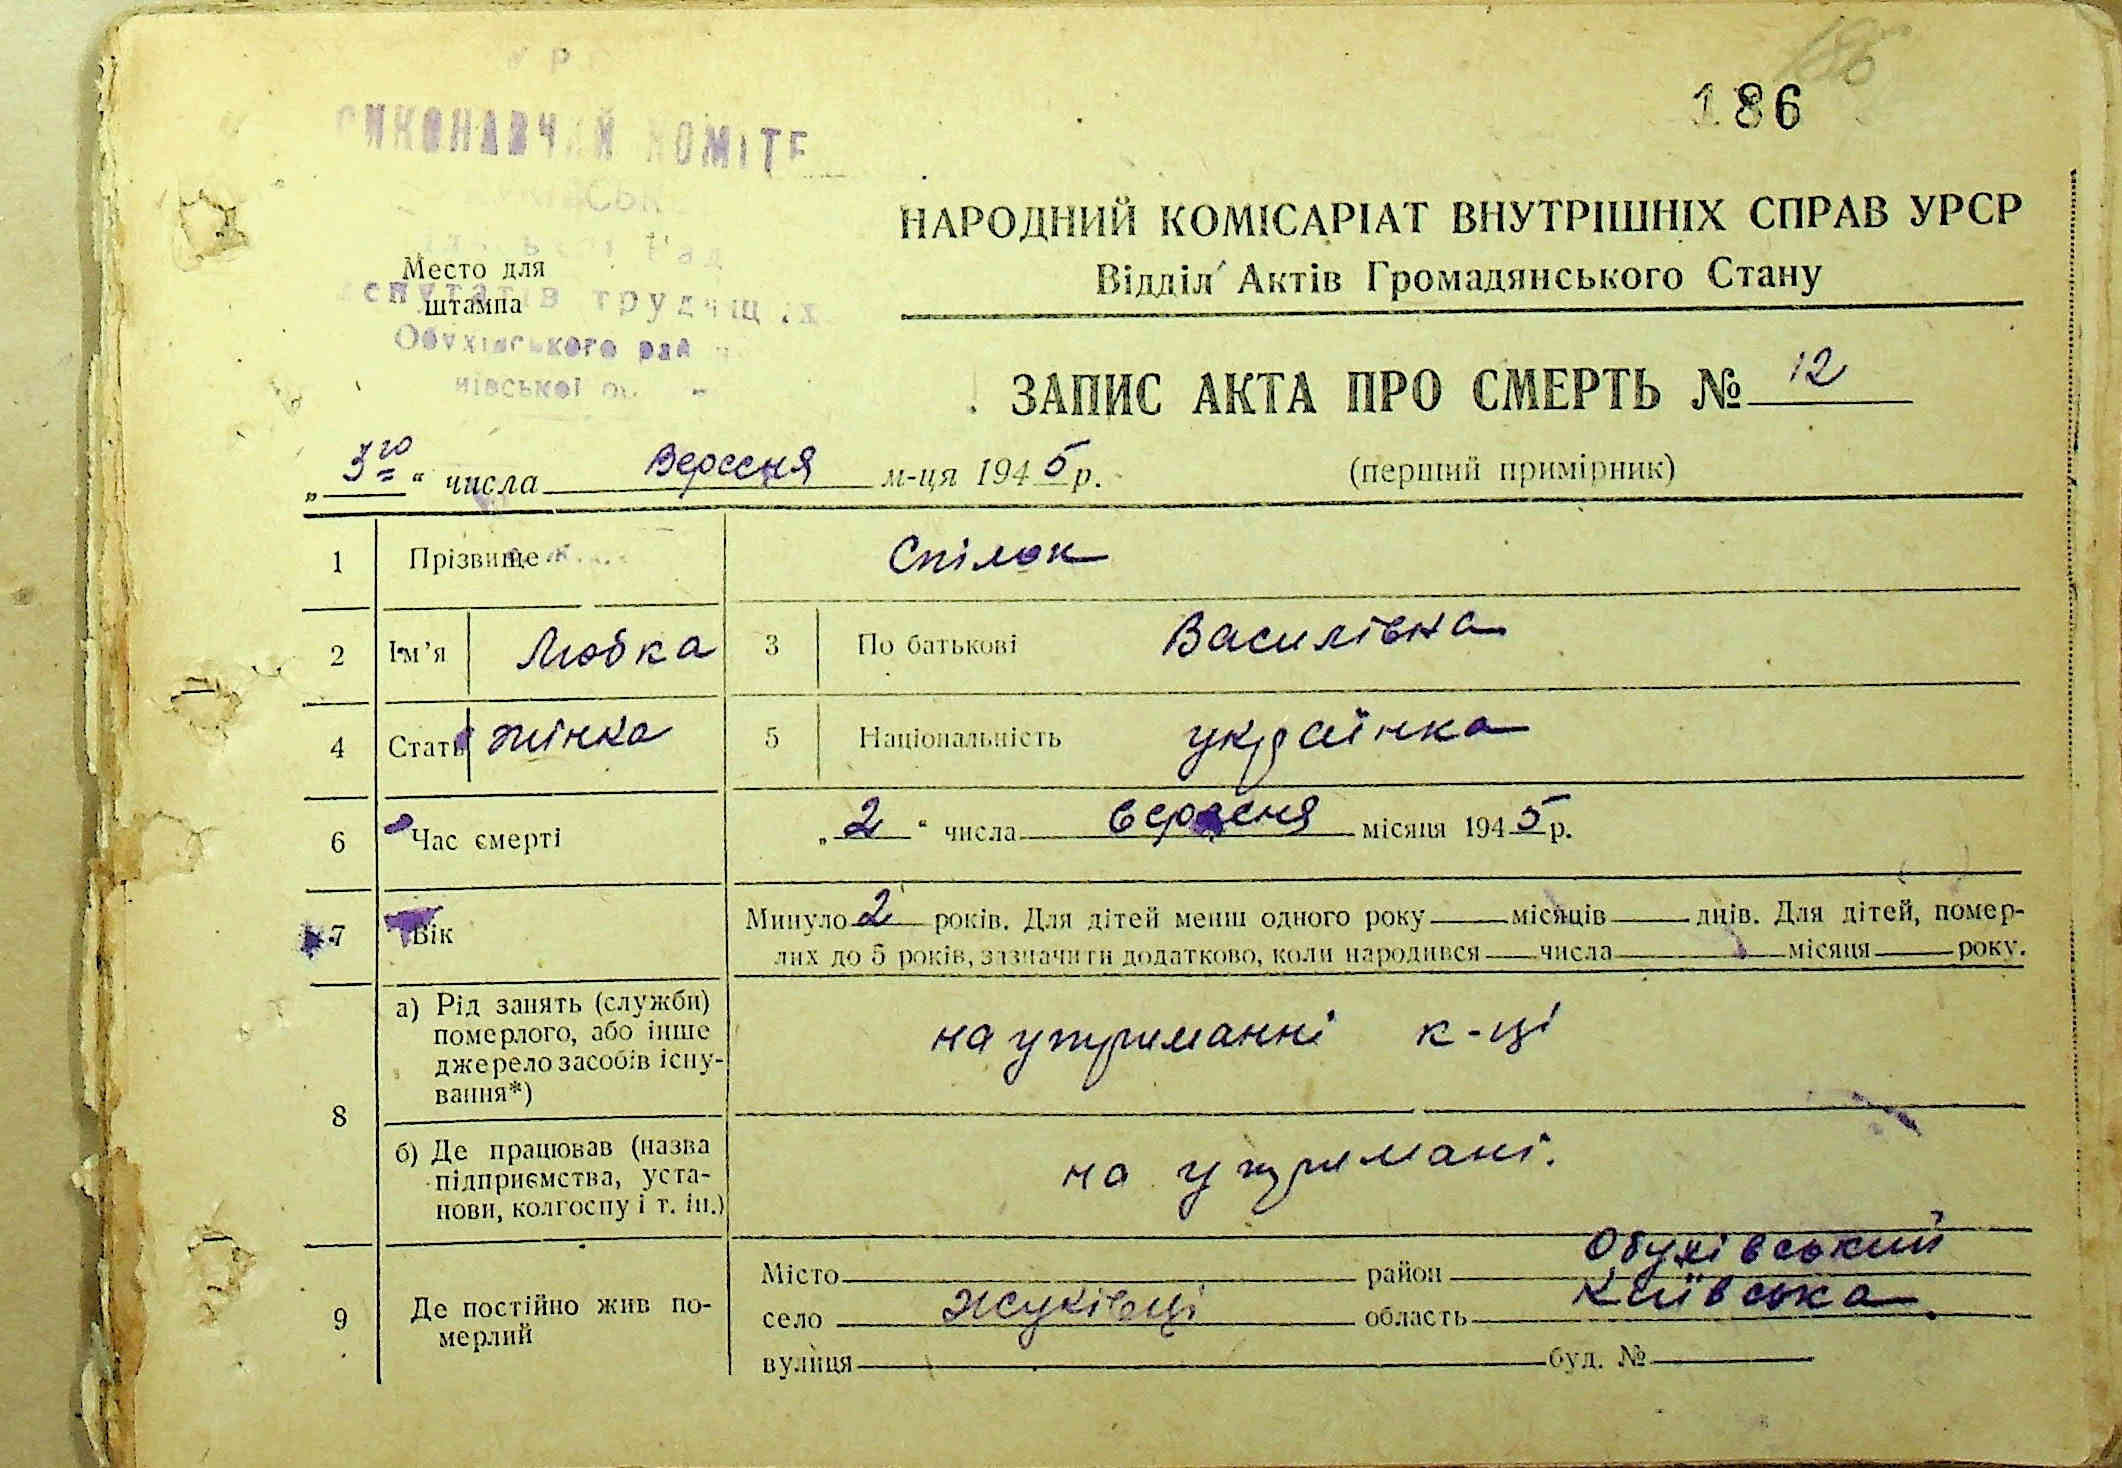 186
НАРОДНИЙ КОМІСАРІАТ ВНУТРІШНІХ СПРАВ УРСР
Відділ Актів Громадянського Стану
Место для
штампа
депутатів трудящих
Обухівського рай
ЗАПИС АКТА ПРО СМЕРТЬ № 12
„3го“ числа Вересня м-ця 1945 р. (перший примірник)
1 Прізвище Спілок
2 Ім’я Любка 3 По батькові Василівна
4 Стать жінка 5 Національність українка
6 Час смерті „2“ числа вересня місяця 1945 р.
7 Вік Минуло 2 років. Для дітей менш одного року місяців днів. Для дітей, помер-
лих до 5 років, зазначити додатково, коли народився числа місяця року.
8 а) Рід занять (служби)
померлого, або інше
джерело засобів існу-
вання*) на утриманні к-ці
б) Де працював (назва
підприємства, уста-
нови, колгоспу і т. ін.) на утримані.
9 Де постійно жив по-
мерлий
Місто район Обухівський
село Жуківці область Київська
вулиця буд. №